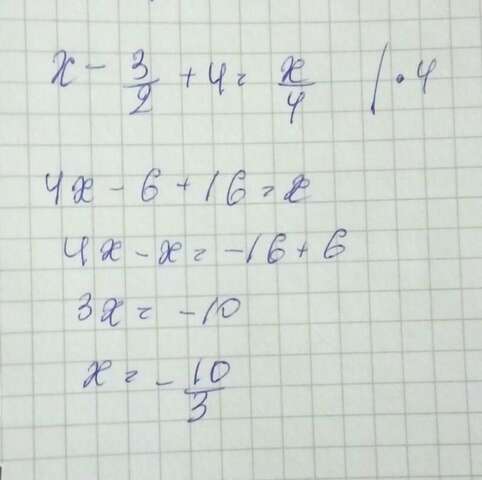 x - 3/2 + 4 = x/4 | · 4
4x - 6 + 16 = x
4x - x = -16 + 6
3x = -10
x = - 10/3